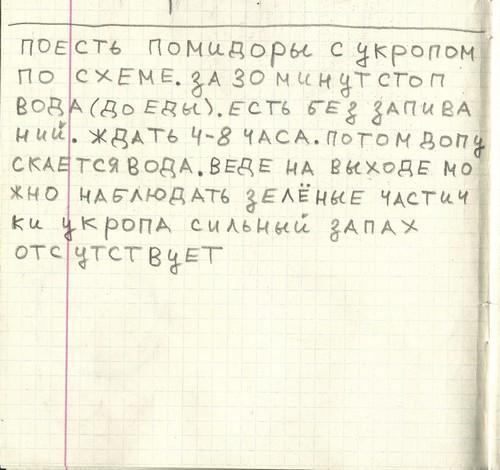 ПОЕСТЬ ПОМИДОРЫ С УКРОПОМ
ПО СХЕМЕ. ЗА 30 МИНУТ СТОП
ВОДА (ДО ЕДЫ). ЕСТЬ БЕЗ ЗАПИВА
НИЙ. ЖДАТЬ 4-8 ЧАСА. ПОТОМ ДОПУ
СКАЕТСЯ ВОДА. ВЕДЕ НА ВЫХОДЕ МО
ЖНО НАБЛЮДАТЬ ЗЕЛЁНЫЕ ЧАСТИЧ
КИ УКРОПА СИЛЬНЫЙ ЗАПАХ
ОТСУТСТВУЕТ